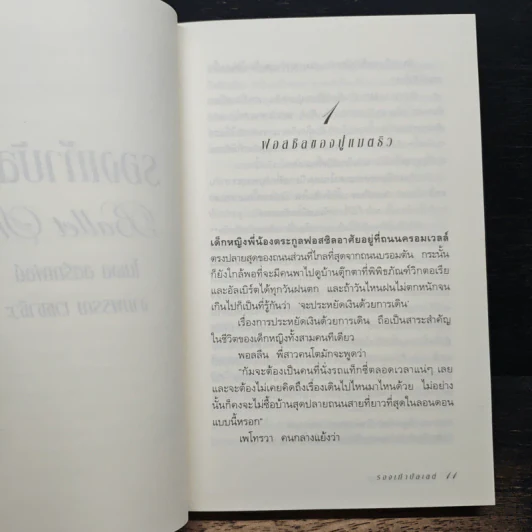 รองเท้าบัล
Ballet Sh
1
ฟอสซิลของปู่แมตธิว
เด็กหญิงพี่น้องตระกูลฟอสซิลอาศัยอยู่ที่ถนนครอมเวลล์
ตรงปลายสุดของถนนส่วนที่ไกลที่สุดจากถนนบรอมตัน กระนั้น
ก็ยังใกล้พอที่จะมีคนพาไปดูบ้านตุ๊กตาที่พิพิธภัณฑ์วิกตอเรีย
และอัลเบิร์ตได้ทุกวันฝนตก และถ้าวันไหนฝนไม่ตกหนักจน
เกินไปก็เป็นที่รู้กันว่า 'จะประหยัดเงินด้วยการเดิน'
เรื่องการประหยัดเงินด้วยการเดิน ถือเป็นสาระสำคัญ
ในชีวิตของเด็กหญิงทั้งสามคนทีเดียว
พอลลีน พี่สาวคนโตมักจะพูดว่า
"กัมจะต้องเป็นคนที่นั่งรถแท็กซี่ตลอดเวลาแน่ๆ เลย
และจะต้องไม่เคยคิดถึงเรื่องเดินไปไหนมาไหนด้วย ไม่อย่าง
นั้นก็คงจะไม่ซื้อบ้านสุดปลายถนนสายที่ยาวที่สุดในลอนดอน
แบบนี้หรอก"
เพโทรวา คนกลางแย้งว่า
รองเท้าบัลเลต์ 11